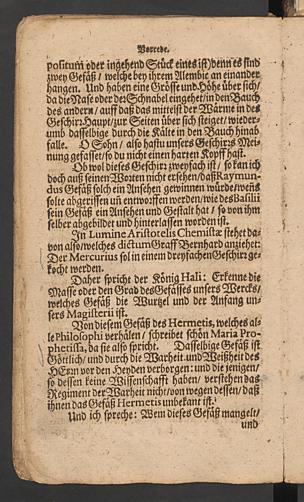 Vorrede.
positum oder ingehend Stück eines ist) denn es sind
zwey Gefäß / welche bey ihrem Alembic an einander
hangen. Und haben eine Grösse und Höhe über sich/
da die Nase oder der Schnabel eingehet/in den Bauch
des andern/ auff daß das mittelst der Wärme in des
Geschirꝛ Haupt/zur Seiten über sich steiget/wieder-
umb dasselbige durch die Kälte in den Bauch hinab
falle. O Sohn/ also hastu unsers Geschirꝛs Mei-
nung gefasset/so du nicht einen harten Kopff hast.
Ob wol dieses Geschirꝛ zweyfach ist/ so kan ich
doch auß seinen Worten nicht ersehen/daß Raymun-
dus Gefäß solch ein Ansehen gewinnen würde/wenn
solte abgerissen uñ entworffen werden/wie des Basilii
sein Gefäß ein Ansehen und Gestalt hat/ so von ihm
selber abgebildet und hinterlassen worden ist.
In Lumine Aristotelis Chemistæ stehet da-
von also/welches dictum Graff Bernhard anziehet:
Der Mercurius sol in einem dreyfachen Geschirꝛ ge-
kocht werden.
Daher spricht der König Hali: Erkenne die
Masse oder den Grad des Gefässes unsers Wercks/
welches Gefäß die Wurtzel und der Anfang un-
sers Magisterii ist.
Von diesem Gefäß des Hermetis, welches al-
le Philosophi verhälen/ schreibet schön Maria Pro-
phetissa, da sie also spricht. Dasselbige Gefäß ist
Göttlich/ und durch die Warheit und Weißheit des
HErrn vor den Heyden verborgen: und die jenigen/
so dessen keine Wissenschafft haben/ verstehen das
Regiment der Warheit nicht/von wegen dessen/ daß
ihnen das Gefäß Hermetis unbekant ist.
Und ich spreche: Wem dieses Gefäß mangelt/
und